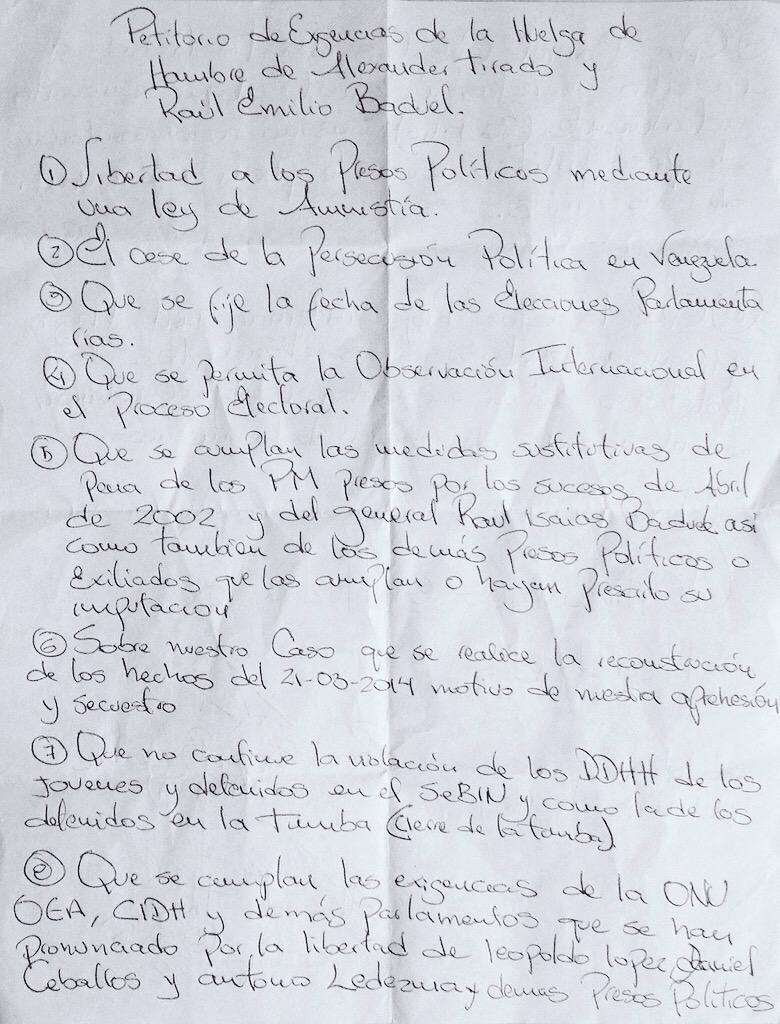 Petitorio de Exigencias de la Huelga de
Hambre de Alexander Tirado y
Raúl Emilio Baduel.
① Libertad a los Presos Políticos mediante
una ley de Amnistía.
② El cese de la Persecusión Política en Venezuela.
③ Que se fije la fecha de las Elecciones Parlamenta
rias.
④ Que se permita la Observación Internacional en
el Proceso Electoral.
⑤ Que se cumplan las medidas sustitutivas de
Pena de los PM presos por los sucesos de Abril
de 2002 y del general Raúl Isaias Baduel así
como tambien de los demás Presos Políticos o
Exiliados que las cumplan o hayan Prescrito su
imputación
⑥ Sobre nuestro Caso que se realice la reconstrucción
de los hechos del 21-03-2014 motivo de nuestra aprehesión
y secuestro
⑦ Que no continue la violación de los DDHH de los
Jovenes y detenidos en el SEBIN y como la de los
detenidos en la Tumba (cierre de la tumba).
⑧ Que se cumplan las exigencias de la ONU
OEA, CIDH y demás Parlamentos que se han
pronunciado Por la libertad de leopoldo lopez, Daniel
Ceballos y antonio Ledezma y demas Presos Políticos